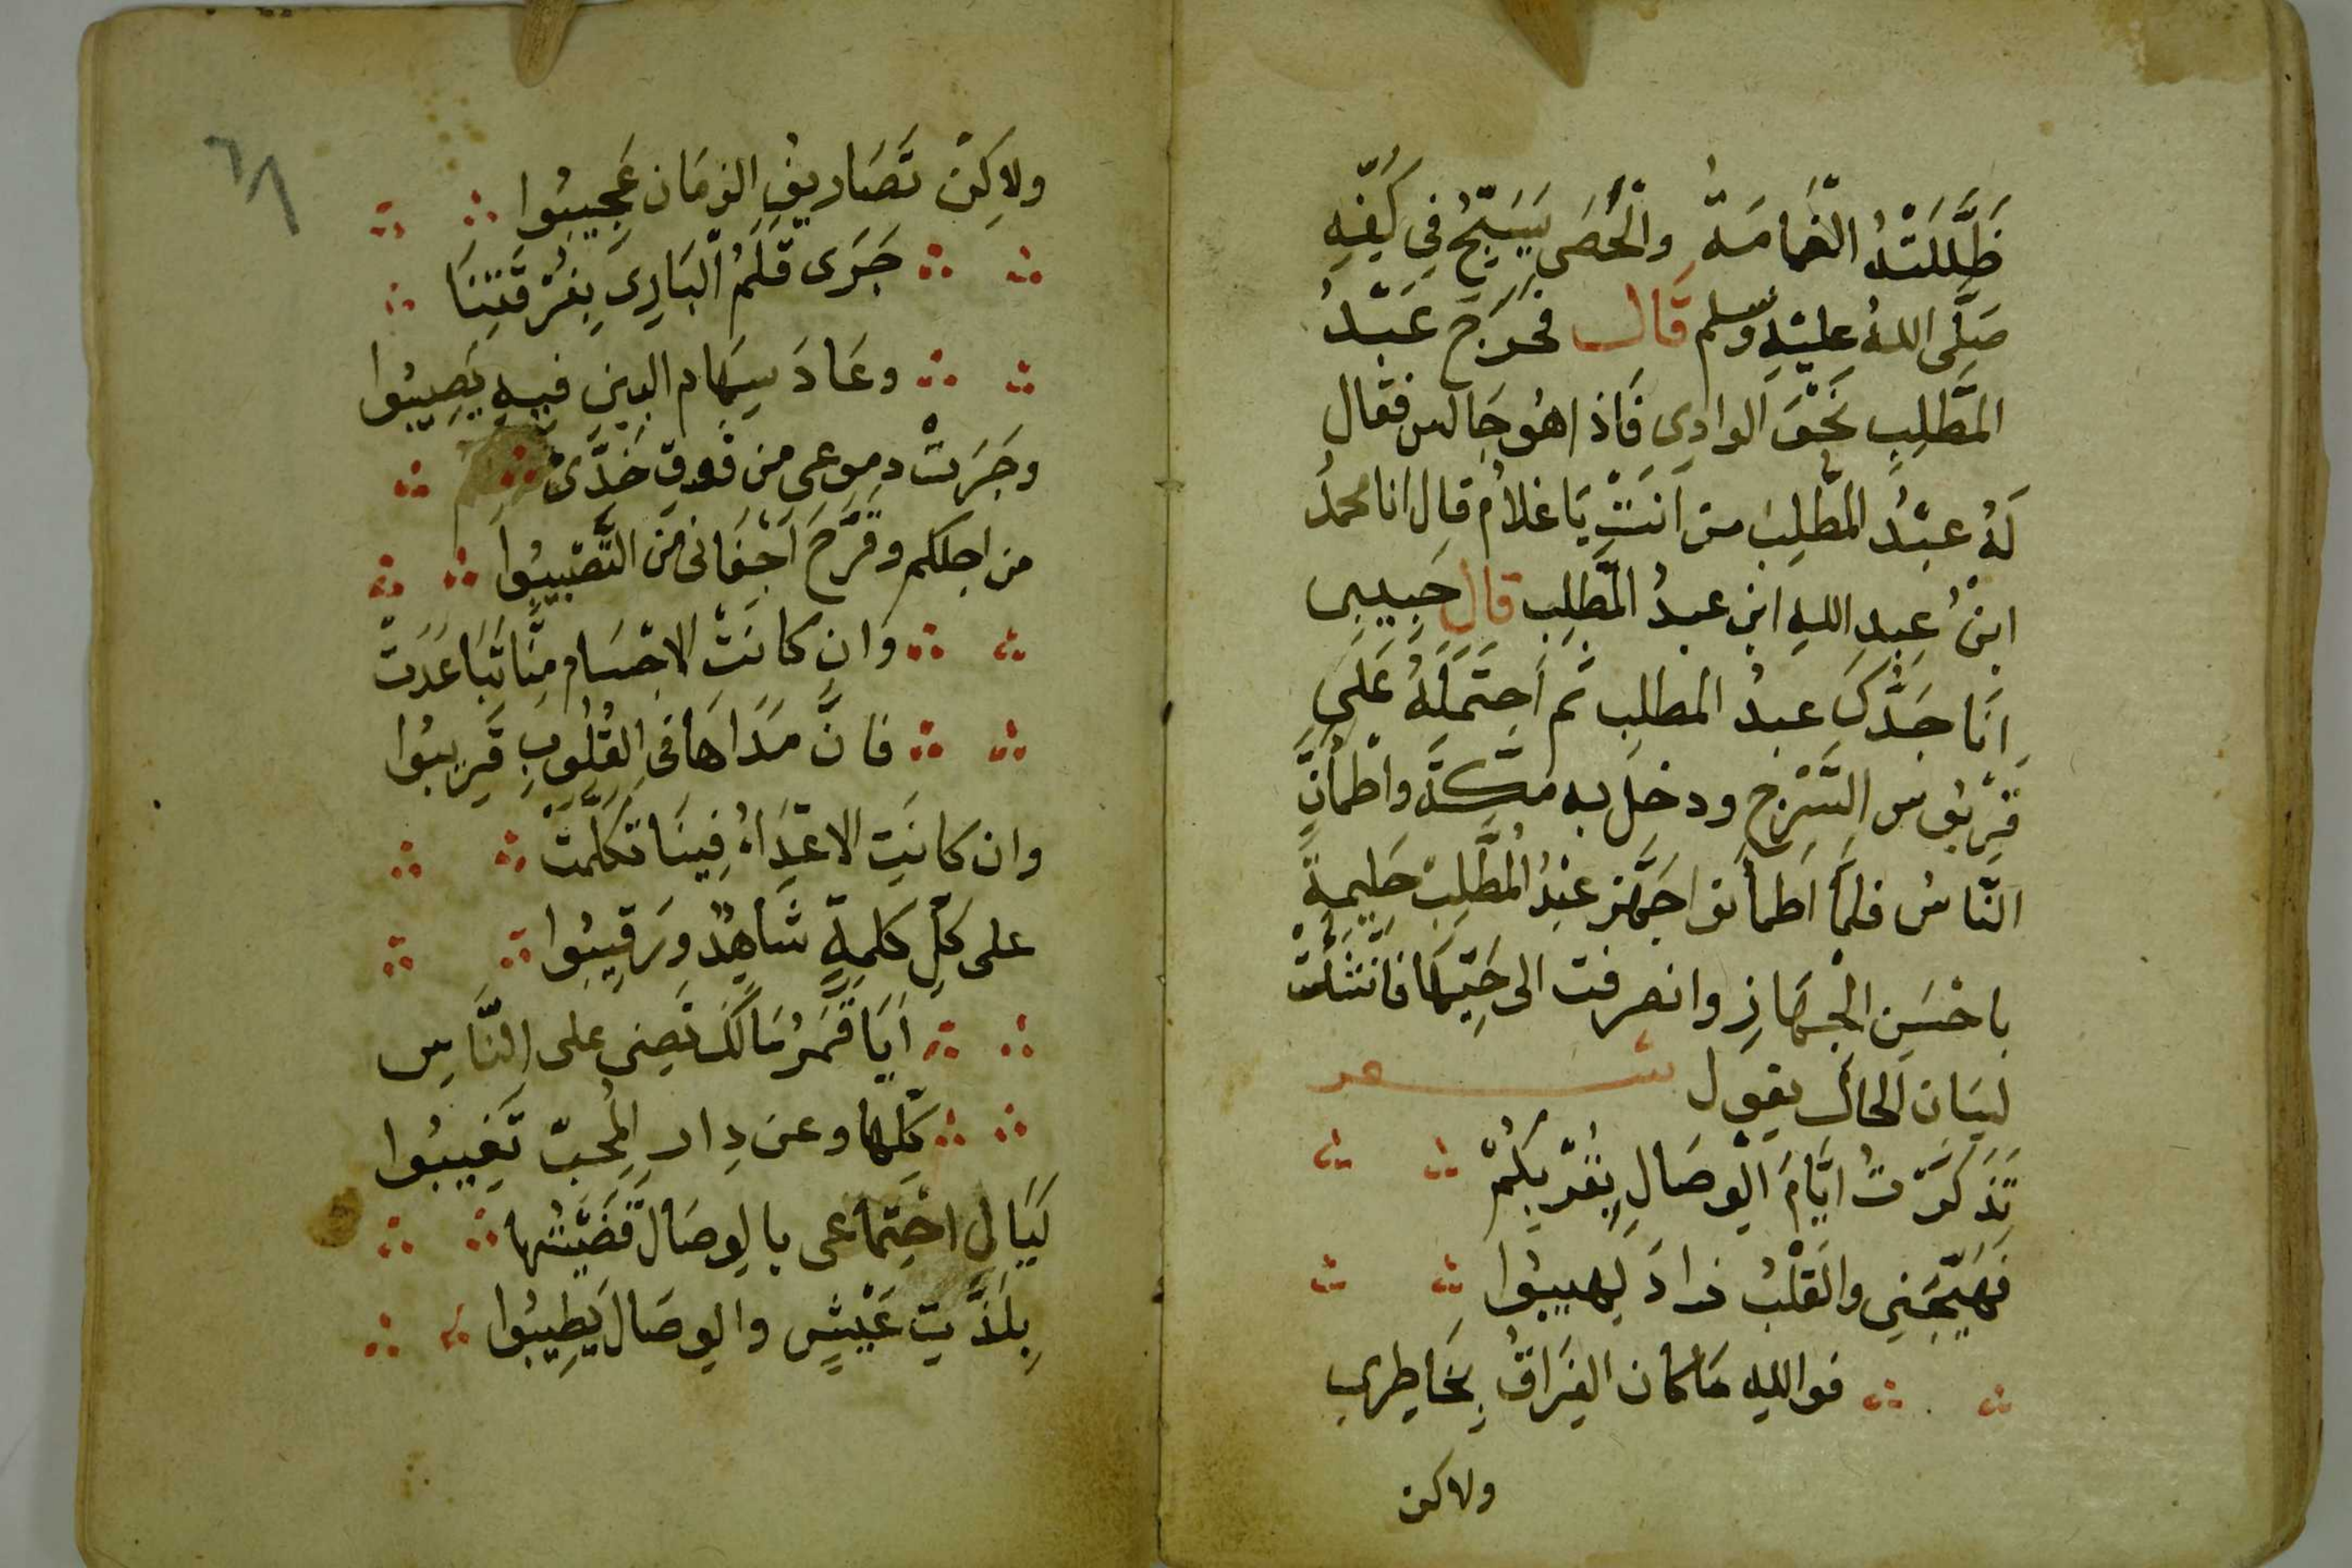 ظَلَّلَتْهُ الغَمامَةُ والْحَصَى يُسَبِّحُ فِي كَفِّهِ
صَلَّى اللهُ عليْهِ وسلم قَال فخَرَجَ عَبْدُ
المطَّلِبِ نَحْوَ الوادِى فَاذا هُو جَالس فقال
لَهُ عبْدُ المطَّلِبِ من اَنتَ يَا غلامُ قال انا محمدُ
ابنُ عبدِ اللهِ ابن عبدُ المطَّلِبِ قال حَبِيبِى
اَنَا جَدُّكَ عبدُ المطلِب ثم اَحتَمَلَهُ عَلَى
قَرْبُوس السَّرْجِ ودخل به مكَّةَ واطْمأَنَّ
النَّاسُ فلمَّا اَطمأنوا جَهَّز عبْدُ المُطَّلِبْ حَلِيمة
باحْسَنِ الْجهَازِ وانصرفت الى حَيِّهَا فانْشَدَتْ
لِسَان الحَال يقول شعر
تَذَكَّرْتُ ايَّامَ الْوِصَالِ بِقُرْبِكُمْ
فَهَيَّجَنِى والقَلْبُ زادَ لهيبُوا
فواللهِ مَا كان الفِرَاقُ بِخَاطِرِى
ولاكن
٦٨
ولاكِنْ تَصَارِيفُ الزمَان عَجِيبُوا
جَرَى قَلَمُ البَارِى بِفُرْقَتِنَا
وعَادَ سِهَام البين فيه يَصِيبُوا
وجَرَتْ دموعى من فَوق خَدَّىْ
من اجلكم وقَرَّحَ اَجْفَانى مَن النَّصْبِيبُوا
وَان كانَتْ الاجْسَام مِنَّا تَبَاعَدَتْ
فانَّ مَدَاهَا فى القُلُوبِ قَرِيبُوا
وان كانَتِ الاعْدَاءُ فِينَا تكلَّمَتْ
على كلِّ كلمةٍ شَاهِدٌ ورَقِيبُوا
اَيَا قَمَرُ مَالَكْ تَضِى على النَّاسِ
كلِّها وعن دِار المُحبّ تَغِيبُوا
لَيَال اجْتِماعى بالوصَال قَضَيْتُها
بِلَذَّتِ عَيْشٍ والوصَال يَطِيبُوا